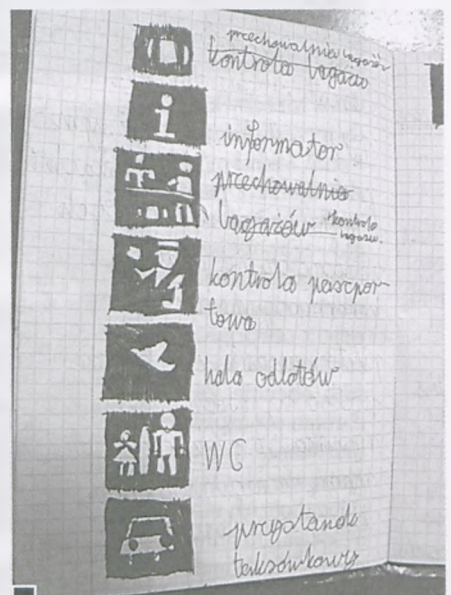 przechowalnia bagażów
kontrola bagażu
i
informator
przechowalnia
bagażów kontrola
bagażu.
kontrola paszpor-
towa
hala odlotów
WC
przystanek
taksówkowy